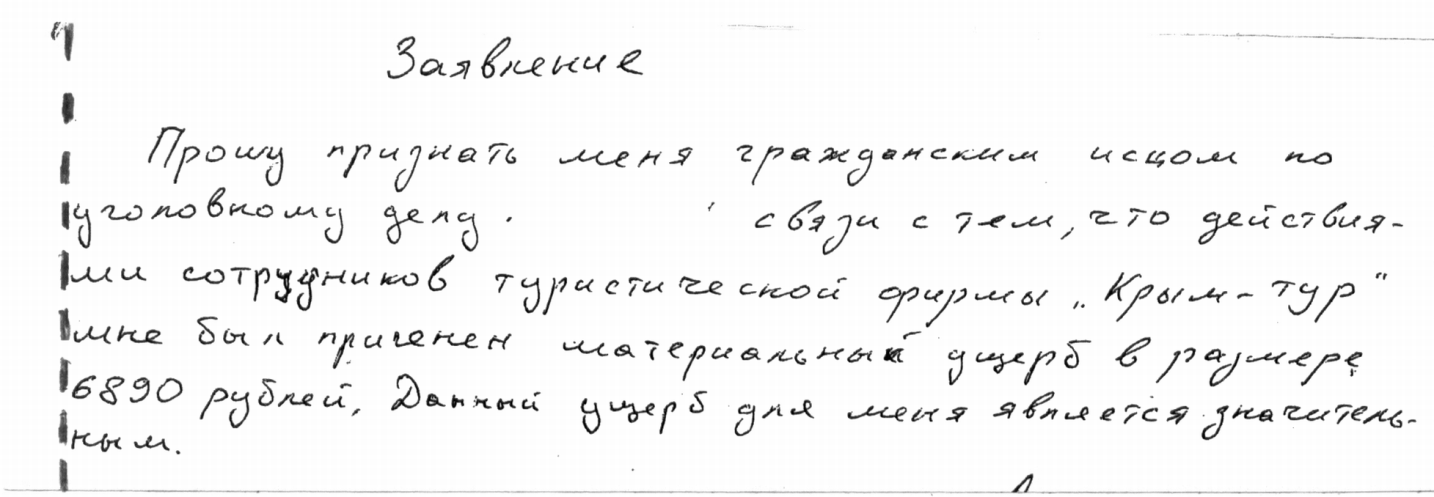 Заявление
Прошу признать меня гражданским исцом по
уголовному делу. связи с тем, что действия-
ми сотрудников туристической фирмы „Крым-тур"
мне был приченен материальный ущерб в размере
6890 рублей. Данный ущерб для меня является значитель-
ным.